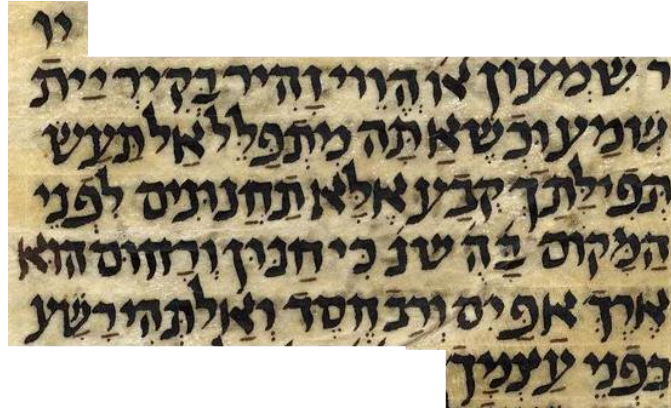 יו
ר שמעון או הווי זהיר בקיריית
שמע וכשאתה מתפלל אל תעש
תפילתך קבע אלא תחנונים לפני
המקום ב׳ה׳ שנ׳ כי חנון ורחום הוא
ארך אפים ורב חסד ואל תהי רשע
בפני עצמך